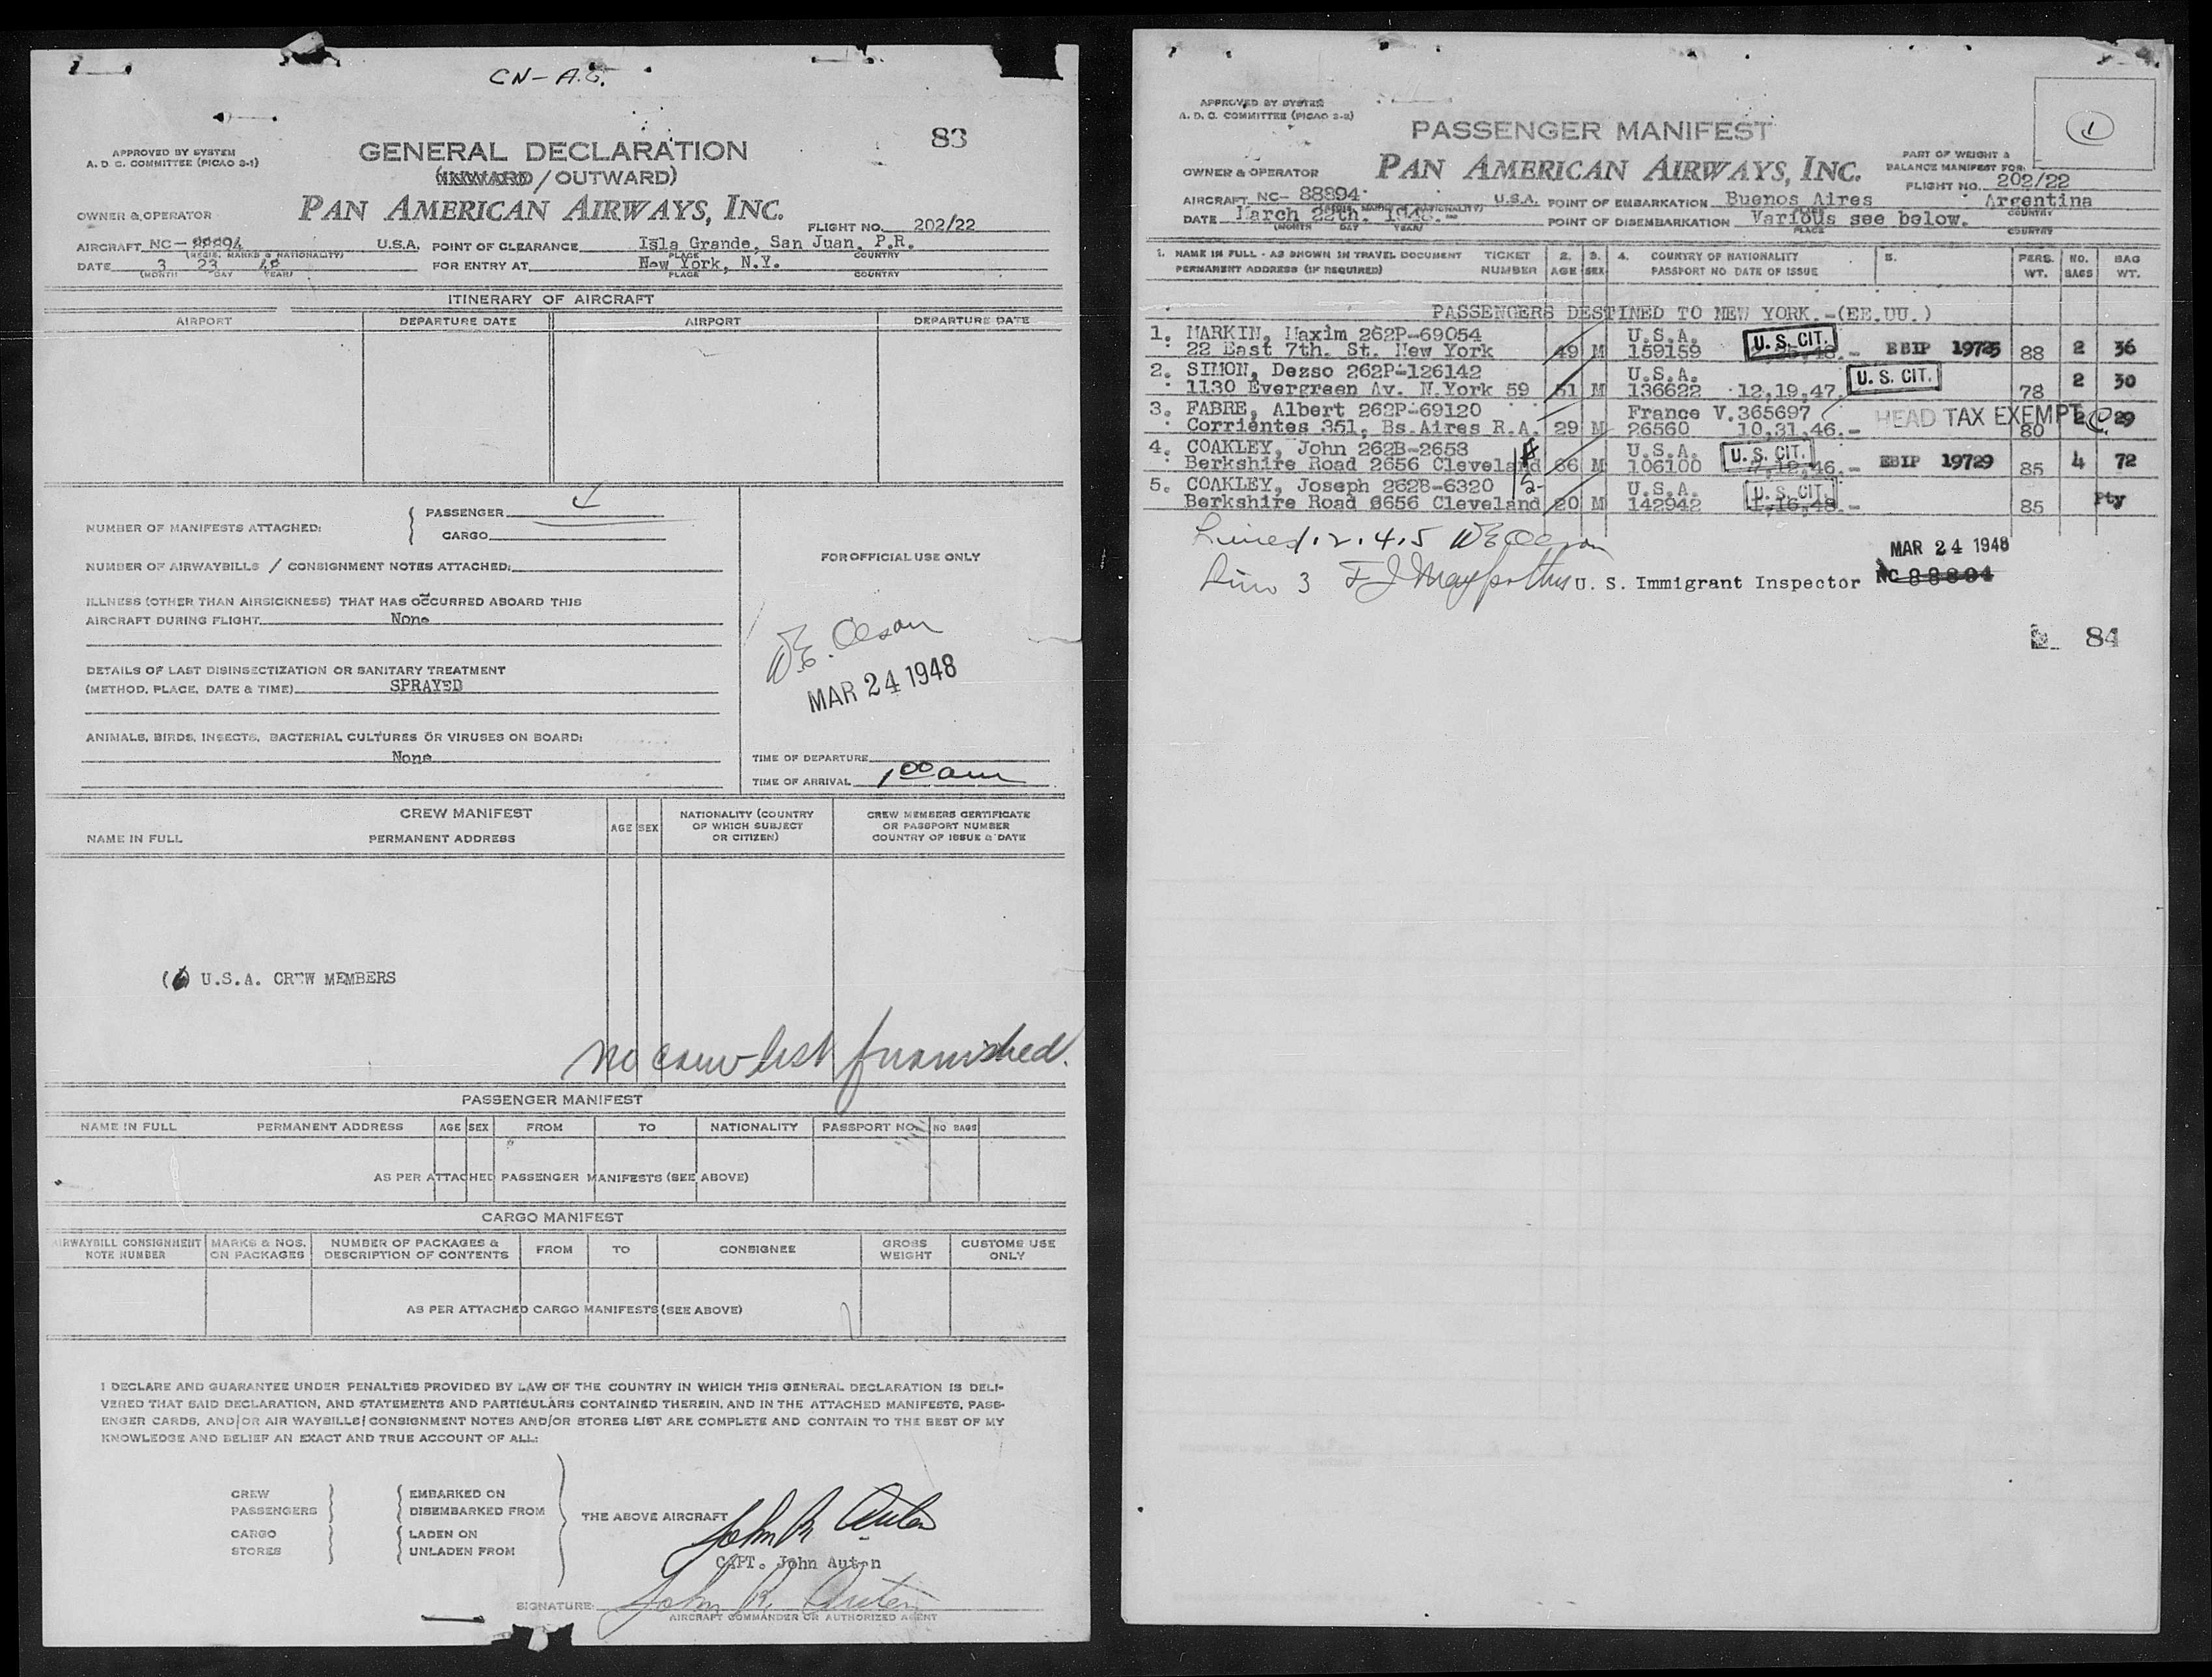 CN- A.G.
83
APPROVED BY SYSTEM
A. D. C. COMMITTEE (PICAO 3-1)
GENERAL DECLARATION
(INWARD / OUTWARD)
OWNER & OPERATOR
PAN AMERICAN AIRWAYS, INC.
FLIGHT NO. 202/22
AIRCRAFT NC- 88894 U.S.A. POINT OF CLEARANCE Isla Grande, San Juan, P.R.
(REGIS. MARKS & NATIONALITY) PLACE COUNTRY
DATE 3 23 48 FOR ENTRY AT New York, N.Y.
(MONTH DAY YEAR) PLACE COUNTRY
ITINERARY OF AIRCRAFT
AIRPORT DEPARTURE DATE AIRPORT DEPARTURE DATE
NUMBER OF MANIFESTS ATTACHED: PASSENGER
CARGO
NUMBER OF AIRWAYBILLS / CONSIGNMENT NOTES ATTACHED:
ILLNESS (OTHER THAN AIRSICKNESS) THAT HAS OCCURRED ABOARD THIS
AIRCRAFT DURING FLIGHT None
DETAILS OF LAST DISINSECTIZATION OR SANITARY TREATMENT
(METHOD, PLACE, DATE & TIME) SPRAYED
ANIMALS, BIRDS, INSECTS, BACTERIAL CULTURES OR VIRUSES ON BOARD:
None
FOR OFFICIAL USE ONLY
W.E. Olson
MAR 24 1948
TIME OF DEPARTURE
TIME OF ARRIVAL 1 00 am
CREW MANIFEST
NAME IN FULL PERMANENT ADDRESS AGE SEX
NATIONALITY (COUNTRY
OF WHICH SUBJECT
OR CITIZEN)
CREW MEMBERS CERTIFICATE
OR PASSPORT NUMBER
COUNTRY OF ISSUE & DATE
(6) U.S.A. CREW MEMBERS
no crew list furnished.
PASSENGER MANIFEST
NAME IN FULL PERMANENT ADDRESS AGE SEX FROM TO NATIONALITY PASSPORT NO. NO BAGS
AS PER ATTACHED PASSENGER MANIFESTS (SEE ABOVE)
CARGO MANIFEST
AIRWAYBILL CONSIGNMENT
NOTE NUMBER
MARKS & NOS.
ON PACKAGES
NUMBER OF PACKAGES &
DESCRIPTION OF CONTENTS
FROM TO CONSIGNEE
GROSS
WEIGHT
CUSTOMS USE
ONLY
AS PER ATTACHED CARGO MANIFESTS (SEE ABOVE)
I DECLARE AND GUARANTEE UNDER PENALTIES PROVIDED BY LAW OF THE COUNTRY IN WHICH THIS GENERAL DECLARATION IS DELI-
VERED THAT SAID DECLARATION, AND STATEMENTS AND PARTICULARS CONTAINED THEREIN, AND IN THE ATTACHED MANIFESTS, PASS-
ENGER CARDS, AND/OR AIR WAYBILLS/ CONSIGNMENT NOTES AND/OR STORES LIST ARE COMPLETE AND CONTAIN TO THE BEST OF MY
KNOWLEDGE AND BELIEF AN EXACT AND TRUE ACCOUNT OF ALL:
CREW EMBARKED ON
PASSENGERS DISEMBARKED FROM
THE ABOVE AIRCRAFT
CARGO LADEN ON
STORES UNLADEN FROM
John R Auten
CAPT. John Auten
SIGNATURE: John R. Auten
AIRCRAFT COMMANDER OR AUTHORIZED AGENT
APPROVED BY SYSTEM
A. D. C. COMMITTEE (PICAO 3-2)
PASSENGER MANIFEST
1
OWNER & OPERATOR
PAN AMERICAN AIRWAYS, INC.
PART OF WEIGHT &
BALANCE MANIFEST FOR:
FLIGHT NO. 202/22
AIRCRAFT NC- 88894 U.S.A. POINT OF EMBARKATION Buenos Aires Argentina
(REGIS. MARKS & NATIONALITY) PLACE COUNTRY
DATE March 22th. 1948.- POINT OF DISEMBARKATION Various see below.
(MONTH DAY YEAR) PLACE COUNTRY
1. NAME IN FULL - AS SHOWN IN TRAVEL DOCUMENT TICKET 2. 3. 4. COUNTRY OF NATIONALITY 5. PERS. NO. BAG
PERMANENT ADDRESS (IF REQUIRED) NUMBER AGE SEX PASSPORT NO DATE OF ISSUE WT. BAGS WT.
PASSENGERS DESTINED TO NEW YORK.-(EE.UU.)
1. MARKIN, Maxim 262P-69054 U.S.A. U. S. CIT.
22 East 7th. St. New York 49 M 159159 EBIP 19725 88 2 36
2. SIMON, Dezso 262P-126142 U.S.A. U. S. CIT.
1130 Evergreen Av. N.York 59 51 M 136622 12,19,47. 78 2 30
3. FABRE, Albert 262P-69120 France V.365697 HEAD TAX EXEMPT
Corrientes 351, Bs.Aires R.A. 29 M 26560 10,31,46.- 80 2 29
4. COAKLEY, John 262B-2658 U.S.A. U. S. CIT.
Berkshire Road 2656 Cleveland 66 M 106100 7,12,46.- EBIP 19729 85 4 72
5. COAKLEY, Joseph 262B-6320 U.S.A. U. S. CIT.
Berkshire Road 2656 Cleveland 20 M 142942 1,16,48.- 85 Pty
Lines 1. 2. 4. 5 WE Olson
MAR 24 1948
Line 3 U. S. Immigrant Inspector NC 88894
84